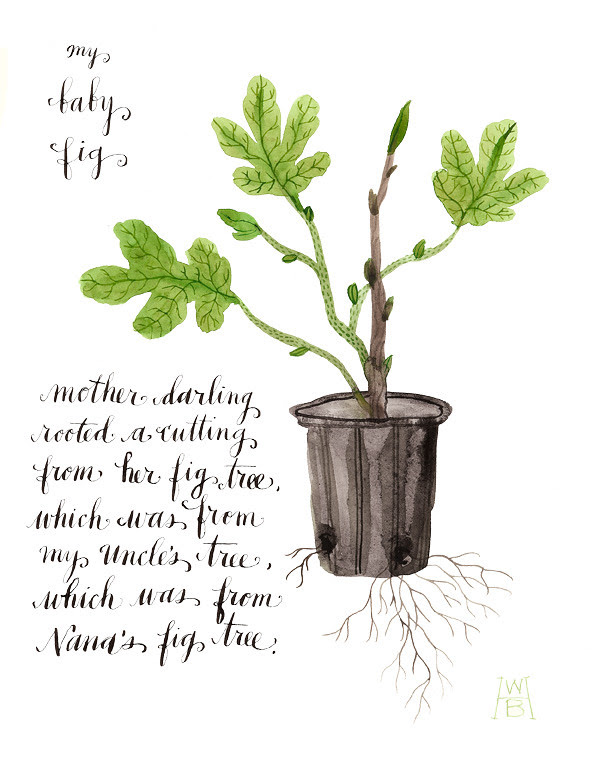 my
baby
fig
mother darling
rooted a cutting
from her fig tree,
which was from
my Uncle's tree,
which was from
Nana's fig tree.
WB